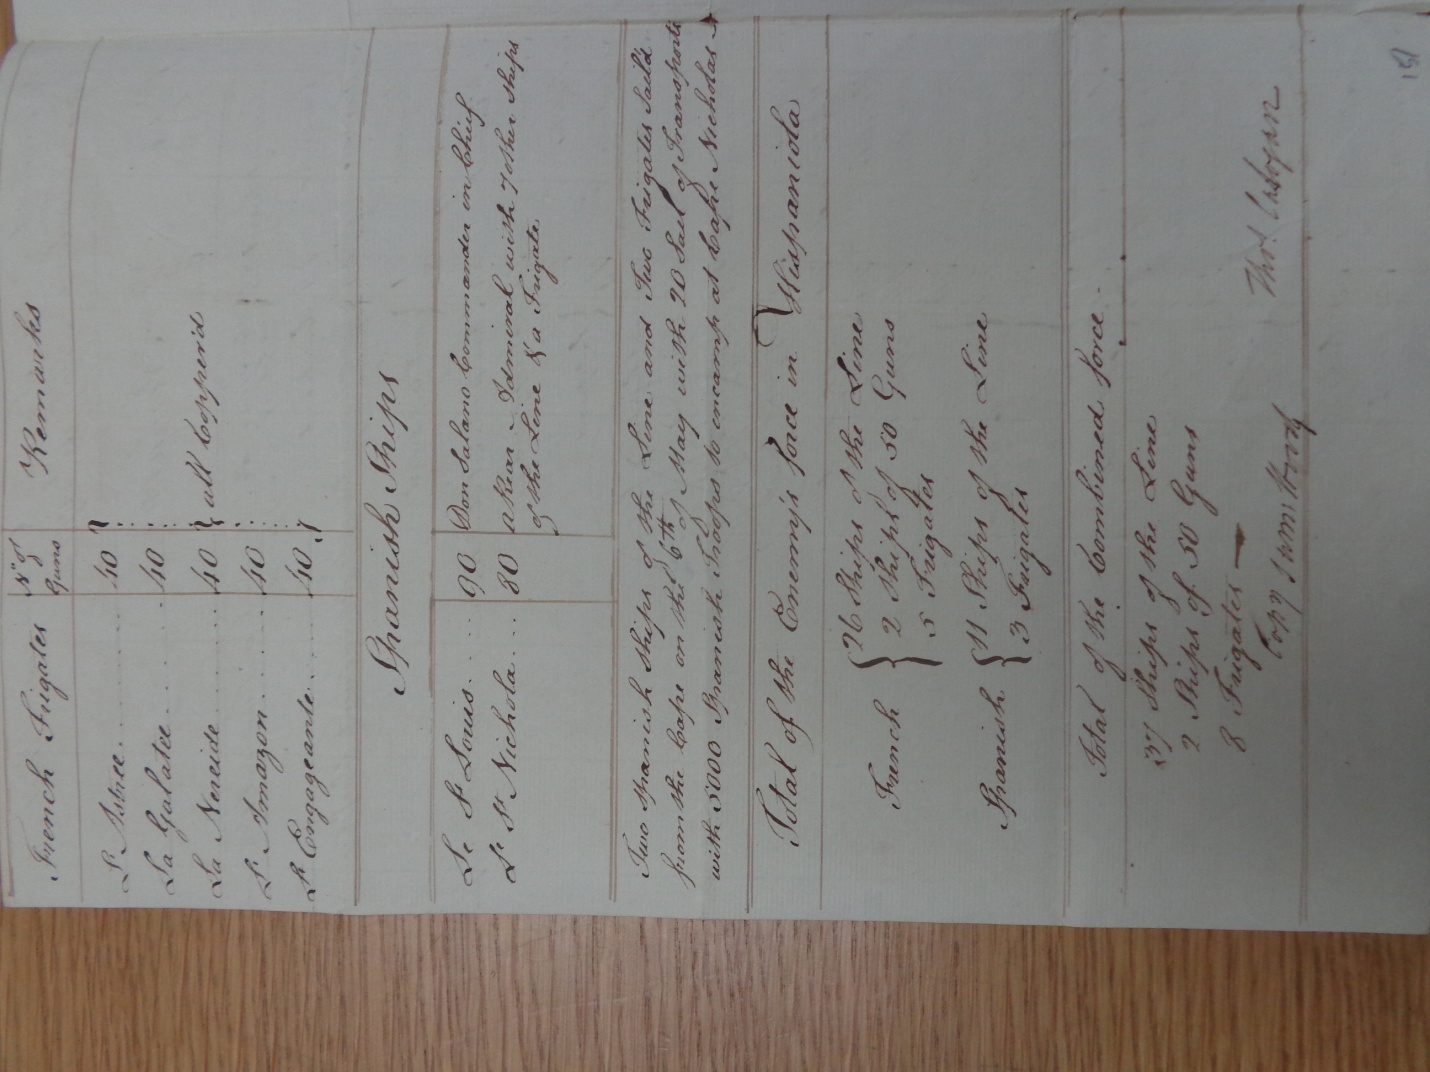 French Frigates No of Guns Remarks
L'Astree 40
La Galatee 40
La Nereide 40 all Copper'd
L'Amazon 40
L'Engageante 40
Spanish Ships
Le St Louis 90 Don Salano Commander in Chief
Le St Nichola 80 a Rear Admiral with 7 other Ships
of the Line & a Frigate
Two Spanish Ships of the Line and Two Frigates Sail'd
from the Cape on the 6th of May with 20 Sail of Transports
with 5000 Spanish Troops to encamp at Cape Nicholas
Total of the Enemy's force in Hispaniola
French 26 Ships of the Line
2 Ships of 50 Guns
5 Frigates
Spanish 11 Ships of the Line
3 Frigates
Total of the Combined force
37 Ships of the Line
2 Ships of 50 Guns
8 Frigates
Copy Saml Hood Thos.